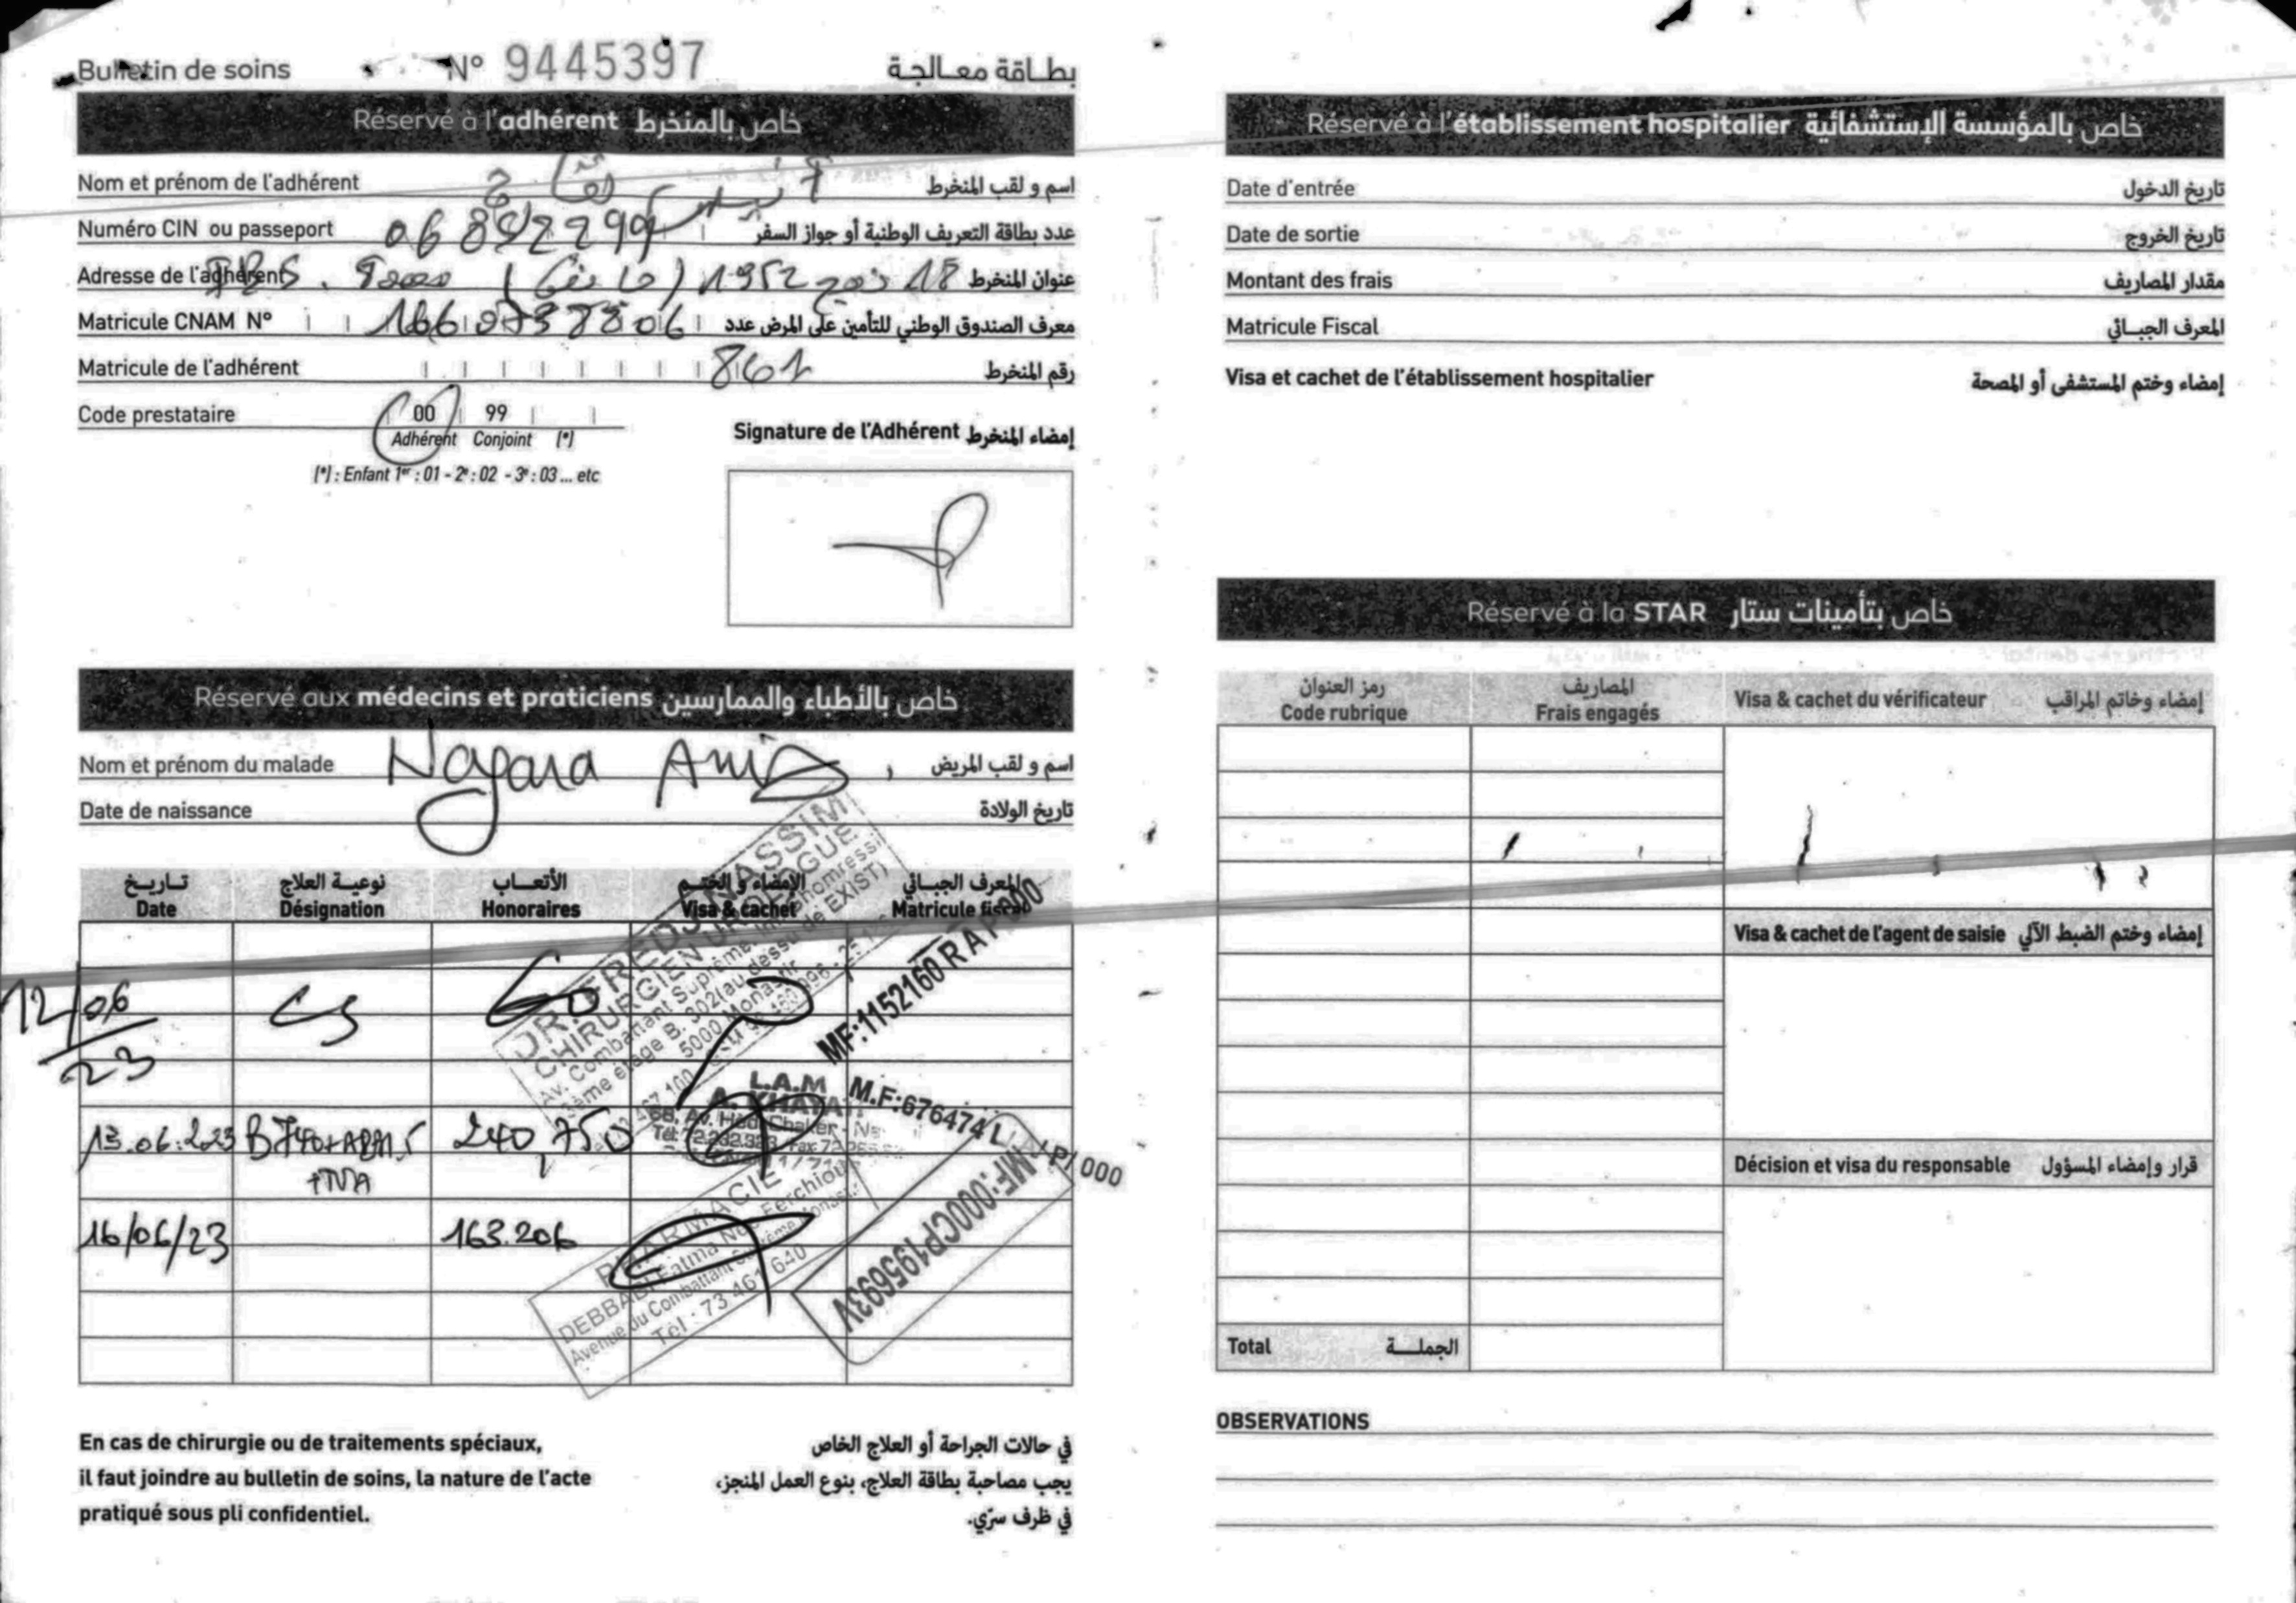 Bulletin de soins N° 9445397 بطاقة معالجة
Réservé à l'adhérent خاص بالمنخرط
Nom et prénom de l'adhérent اسم و لقب المنخرط
Numéro CIN ou passeport عدد بطاقة التعريف الوطنية أو جواز السفر
Adresse de l'adhérent 18 1952 عنوان المنخرط
Matricule CNAM N° معرف الصندوق الوطني للتأمين على المرض عدد
Matricule de l'adhérent 861 رقم المنخرط
Code prestataire 00 99
Adhérent Conjoint (*)
(*) : Enfant 1er : 01 - 2e : 02 - 3e : 03 ... etc
Signature de l'Adhérent إمضاء المنخرط
Réservé aux médecins et praticiens خاص بالأطباء والممارسين
Nom et prénom du malade Nagara Anis اسم و لقب المريض
Date de naissance تاريخ الولادة
تاريخ نوعية العلاج الأتعاب الإمضاء و الختم المعرف الجبائي
Date Désignation Honoraires Visa & cachet Matricule fiscal
12/06/23 Cs 60
CHIRURGIEN UROLOGUE
5000 Monastir
MF:1152160
13.06.2023 240,750
L.A.M
M.F:676474
16/06/23 163.206
PHARMACIE
Avenue du Combattant
Tél : 73 461 640
MF:000CP195693V
En cas de chirurgie ou de traitements spéciaux,
il faut joindre au bulletin de soins, la nature de l'acte
pratiqué sous pli confidentiel.
في حالات الجراحة أو العلاج الخاص
يجب مصاحبة بطاقة العلاج، بنوع العمل المنجز،
في ظرف سرّي.
Réservé à l'établissement hospitalier خاص بالمؤسسة الإستشفائية
Date d'entrée تاريخ الدخول
Date de sortie تاريخ الخروج
Montant des frais مقدار المصاريف
Matricule Fiscal المعرف الجبائي
Visa et cachet de l'établissement hospitalier إمضاء وختم المستشفى أو المصحة
Réservé à la STAR خاص بتأمينات ستار
رمز العنوان المصاريف
Code rubrique Frais engagés Visa & cachet du vérificateur إمضاء وخاتم المراقب
Visa & cachet de l'agent de saisie إمضاء وختم الضبط الآلي
Décision et visa du responsable قرار وإمضاء المسؤول
Total الجملة
OBSERVATIONS